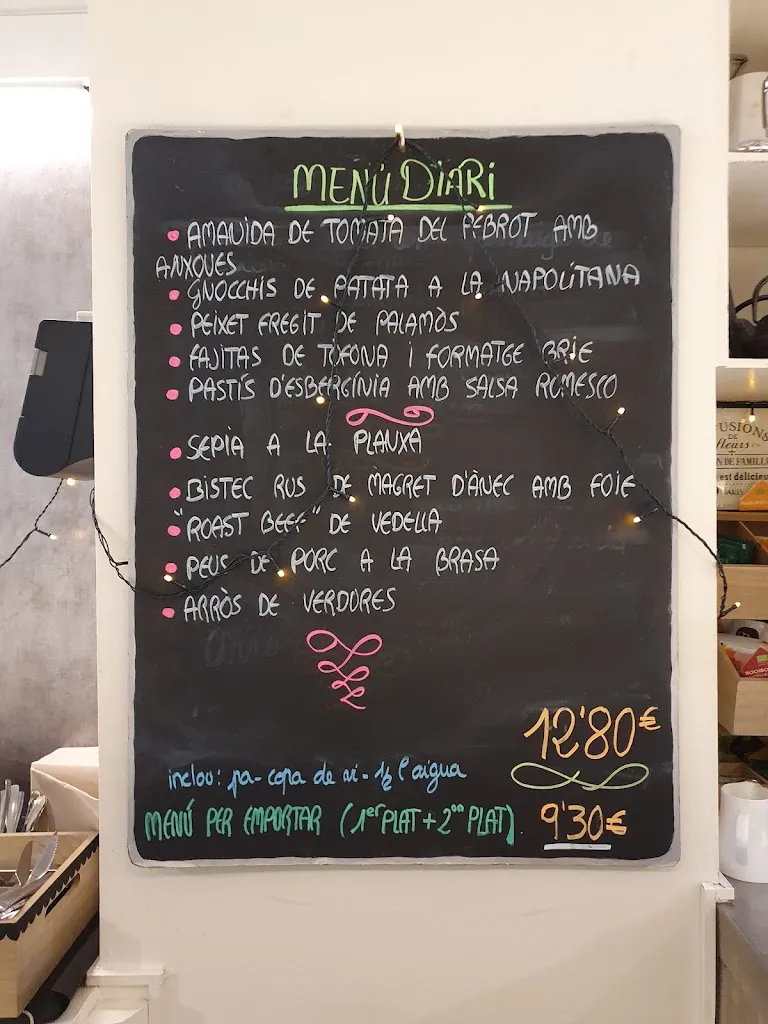 MENÚ DIARI
• AMANIDA DE TOMATA DEL PEBROT AMB
ANXOVES
• GNOCCHIS DE PATATA A LA NAPOLITANA
• PEIXET FREGIT DE PALAMÒS
• FAJITAS DE TÒFONA I FORMATGE BRIE
• PASTÍS D'ESBERGÍNIA AMB SALSA ROMESCO
• SEPIA A LA PLANXA
• BISTEC RUS DE MAGRET D'ÀNEC AMB FOIE
• "ROAST BEEF" DE VEDELLA
• PEUS DE PORC A LA BRASA
• ARRÒS DE VERDURES
12'80€
inclou: pa - copa de vi - ½ l aigua
MENÚ PER EMPORTAR (1er PLAT + 2on PLAT) 9'30€
FUSIONS
DE
fleurs
DE FAMILLE
est délicieu
PARIS
ROOIBO